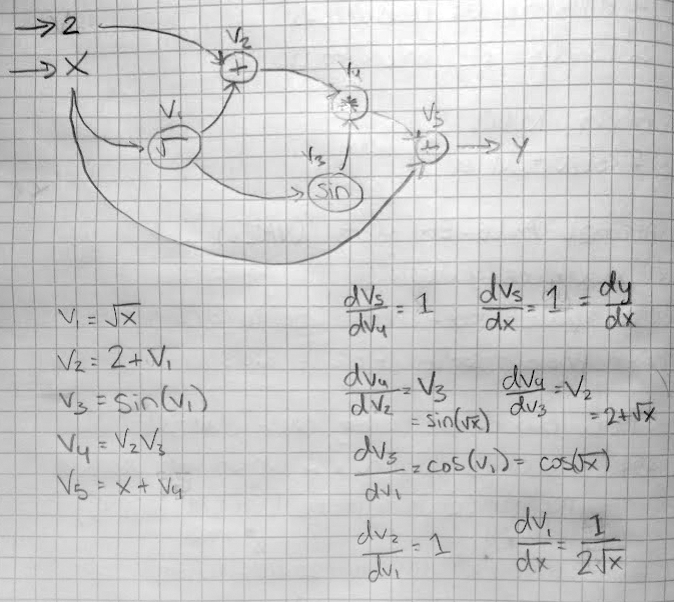 → 2
→ X
V₂
+
V₄
*
V₁
√
V₃
sin
V₅
+
→ Y
V₁ = √x
V₂ = 2 + V₁
V₃ = sin(V₁)
V₄ = V₂V₃
V₅ = x + V₄
dV₅/dV₄ = 1 dV₅/dx = 1 = dy/dx
dV₄/dV₂ = V₃ = sin(√x) dV₄/dV₃ = V₂ = 2+√x
dV₃/dV₁ = cos(V₁) = cos(√x)
dV₂/dV₁ = 1 dV₁/dx = 1/2√x